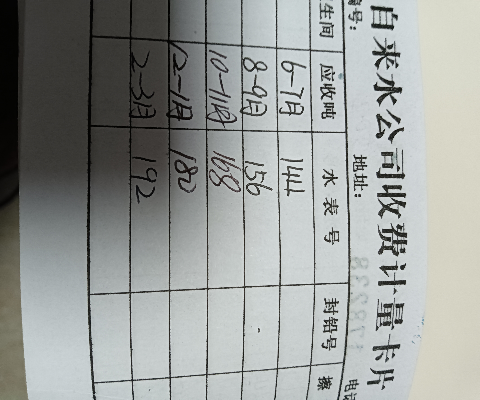 自来水公司收费计量卡片
编号： 地址： 电话
生间 应收吨 水表号 封铅号 擦
6-7月 144
8-9月 156
10-11月 168
12-1月 180
2-3月 192